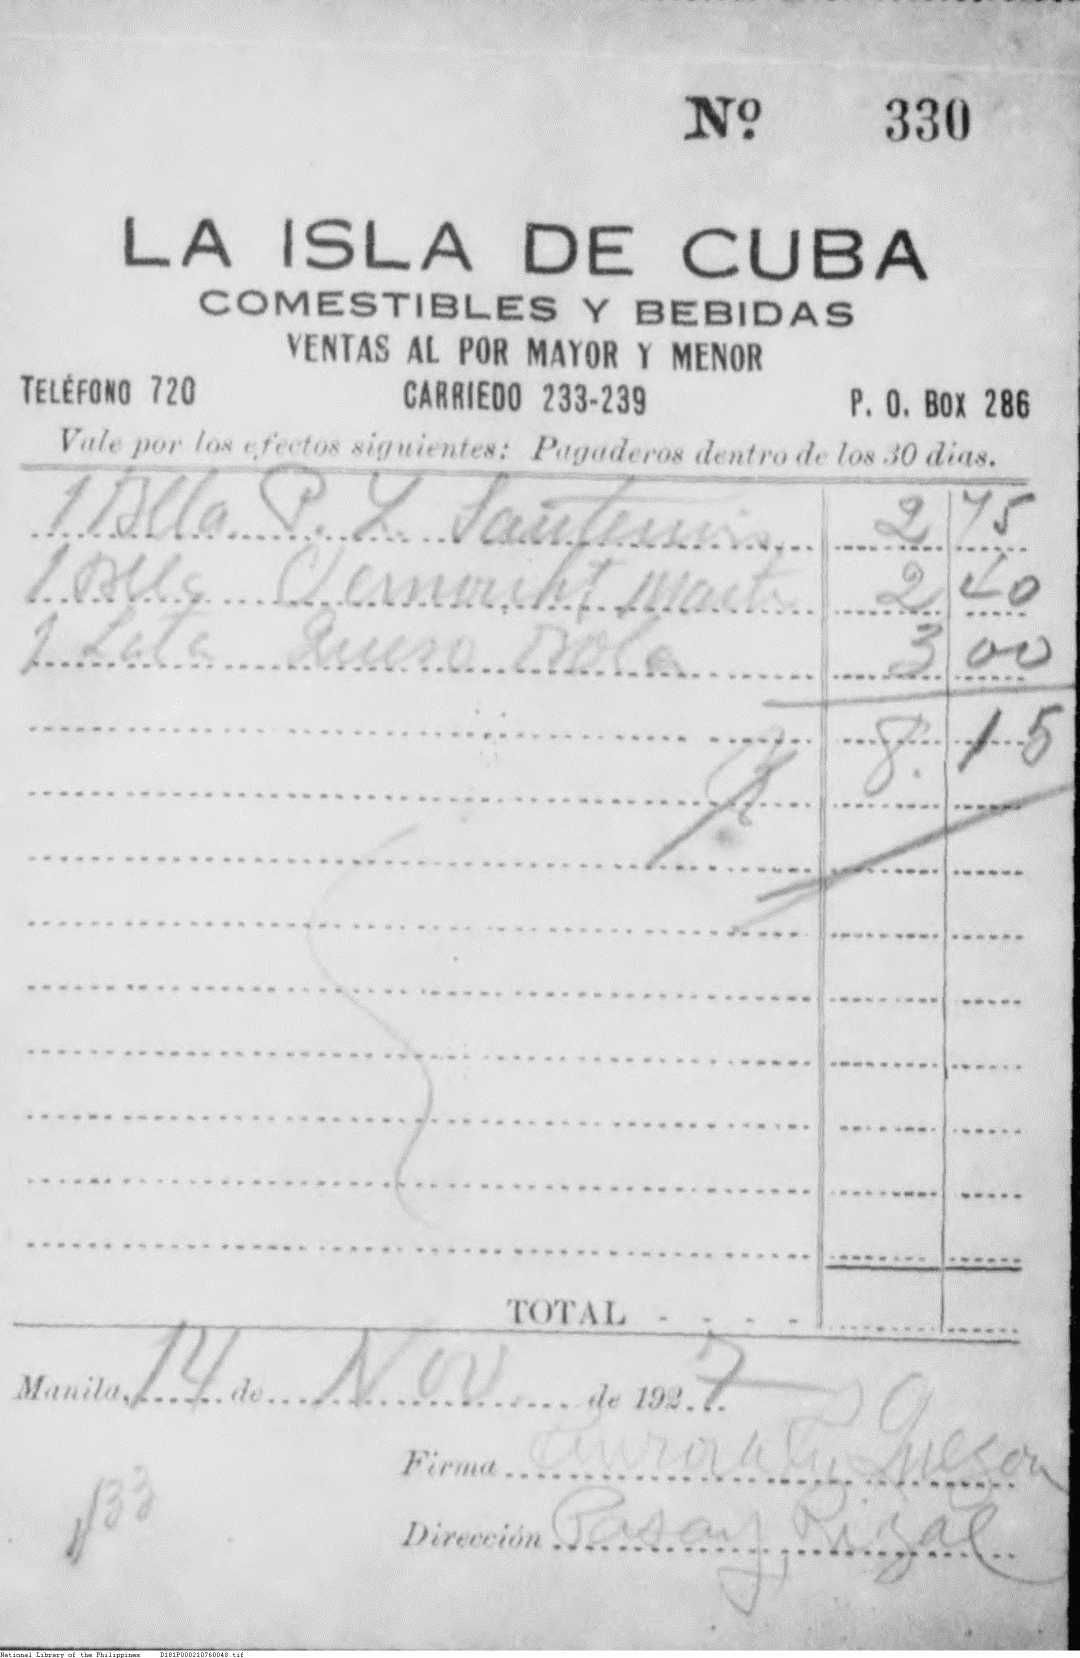 Nº. 330
LA ISLA DE CUBA
COMESTIBLES Y BEBIDAS
VENTAS AL POR MAYOR Y MENOR
TELÉFONO 720 CARRIEDO 233-239 P. O. BOX 286
Vale por los efectos siguientes: Pagaderos dentro de los 30 dias.
1 Blla P. L. 2 75
1 Blla 2 40
1 Lata Queso Bola 3 00
8.15
TOTAL - - - -
Manila, 14 de Nov. de 1927
Firma Aurora Quezon
Dirección Pasay, Rizal
133
National Library of the Philippines D181P000210760048.tif